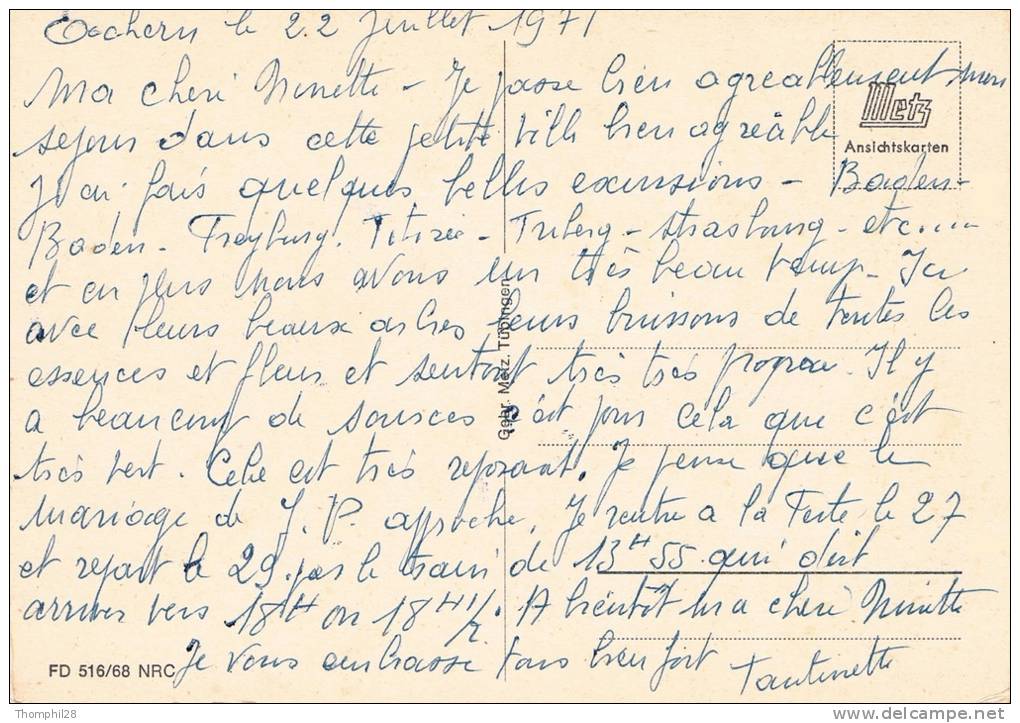 le 22 Juillet 1971
Ma cheri Ninette - Je passe bien agreablement mon
Metz
sejour dans cette petite ville bien agréable
Ansichtskarten
J'ai fais quelques belles excursions - Baden-
Baden - Freyburg. Titizée - Triberg - Strasbourg - etc....
et en plus nous avons un très beau temp - Ici
avec leurs beaux arbres leurs buissons de toutes les
essences et fleurs et sentent très très Il y
a beaucoup de sources c'est pour cela que c'est
très vert. Cele est très reposant. Je pense que le
mariage de J. P. approche. Je rentre a la Ferte le 27
et repart le 29 par le train de 13H 55 qui doit
arriver vers 18H ou 18H 1/2. A bientôt ma cheri Ninette
Je vous embrasse tous bien fort Tantinette
FD 516/68 NRC
Gebr. Metz, Tübingen
Thomphil28
www.delcampe.net